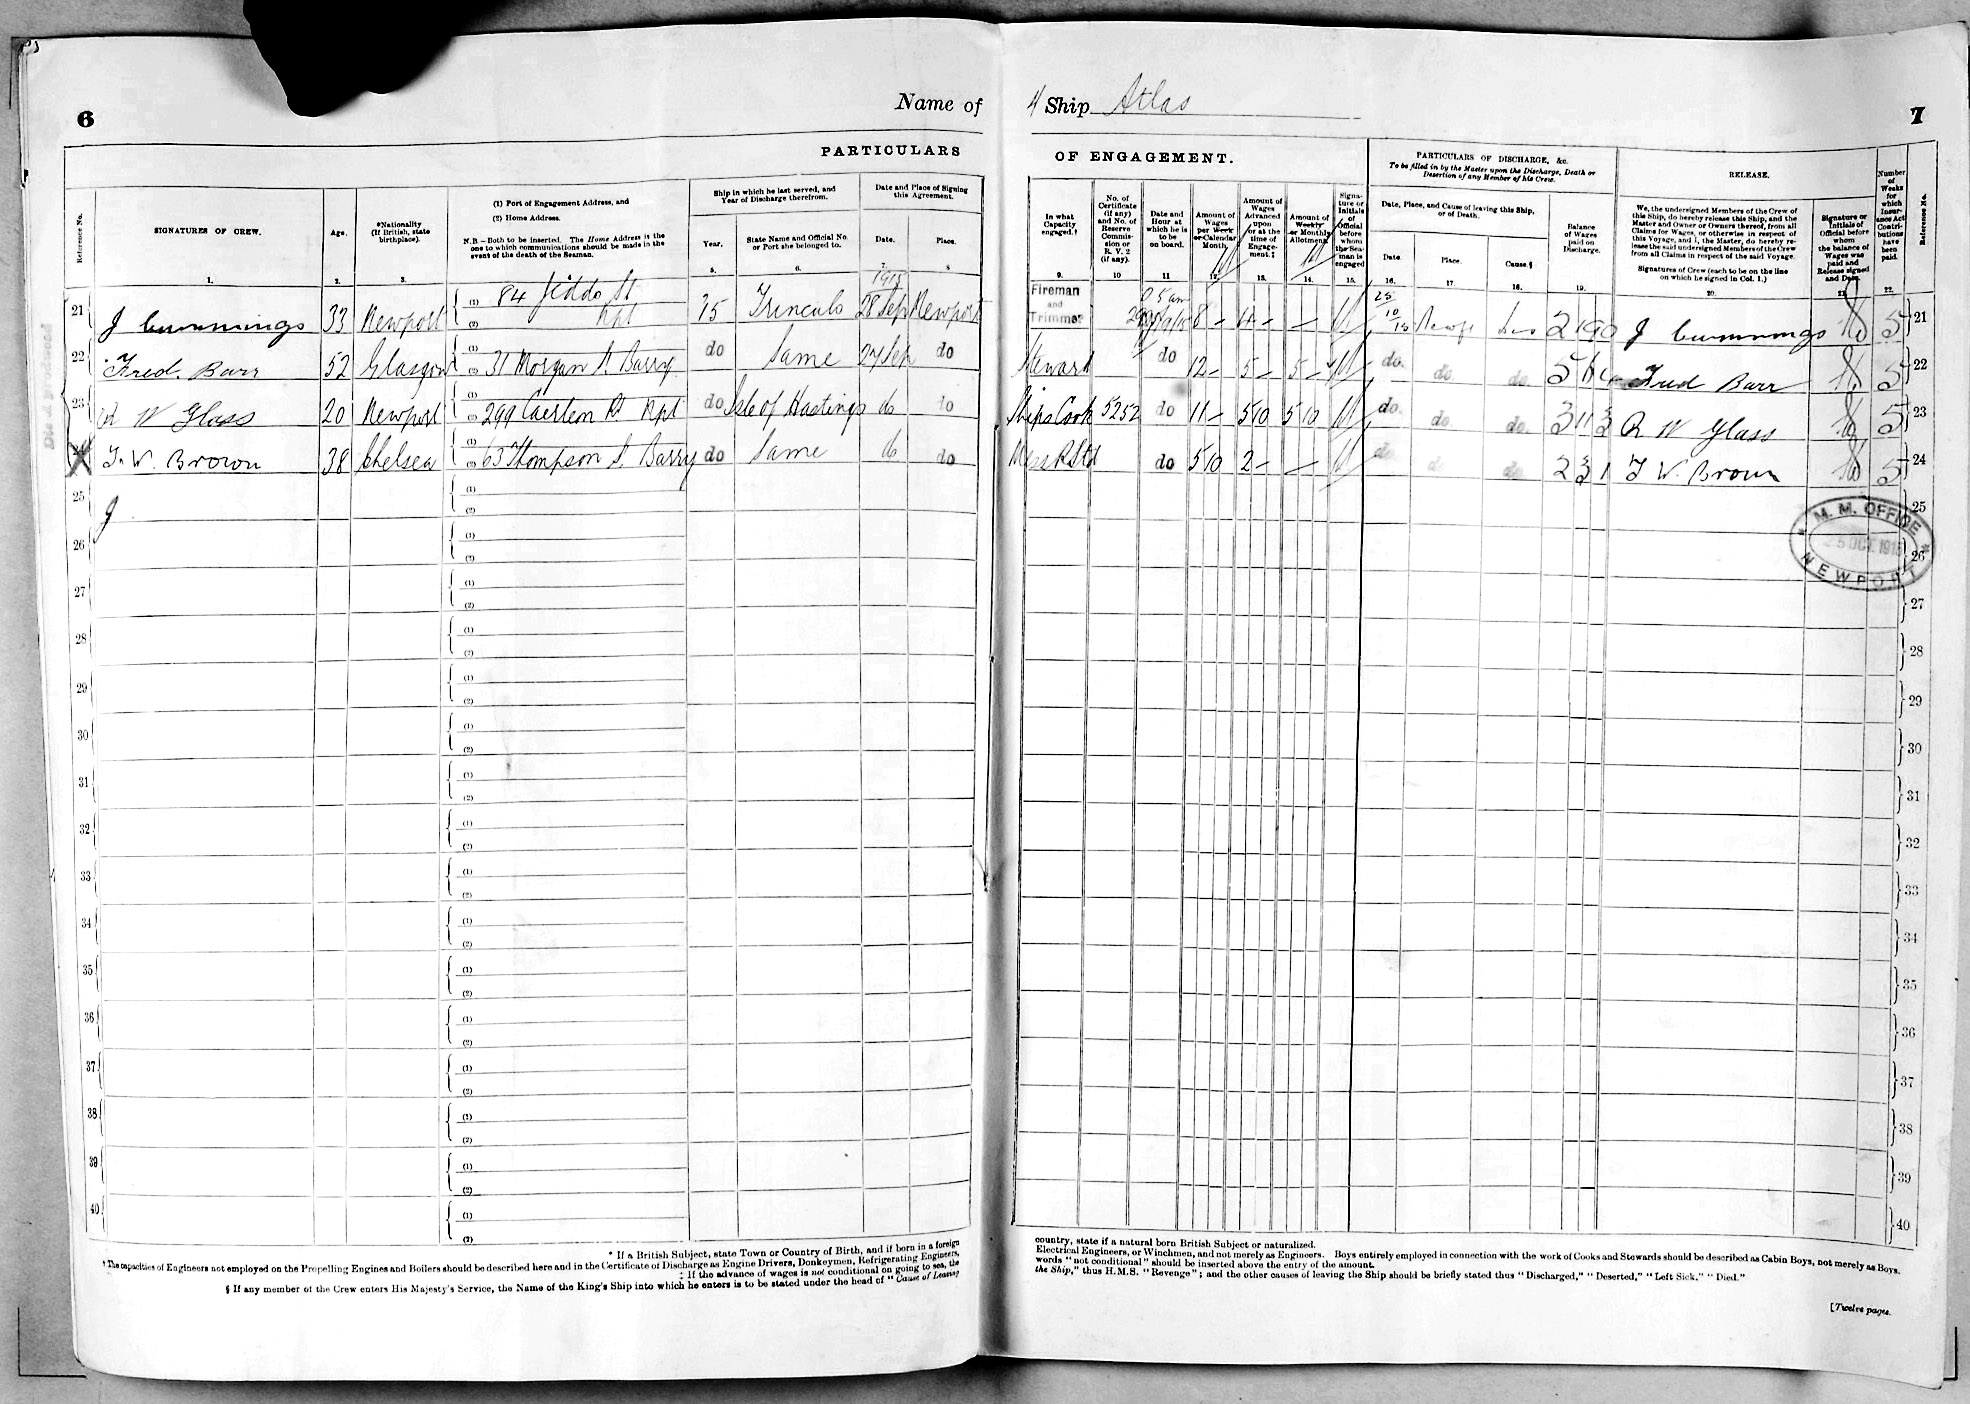 6
Name of
PARTICULARS
Reference No.
SIGNATURES OF CREW.
Age.
*Nationality
(If British, state
birthplace).
(1) Port of Engagement Address, and
(2) Home Address.
N.B.—Both to be inserted. The Home Address is the
one to which communications should be made in the
event of the death of the Seaman.
Ship in which he last served, and
Year of Discharge therefrom.
Year.
State Name and Official No.
or Port she belonged to.
Date and Place of Signing
this Agreement.
Date.
Place.
1. 2. 3. 5. 6. 7. 8
1915
21 J Cummings 33 Newport (1) 84 Jeddo St (2) Npt 15 Trinculo 28 Sep Newport
22 Fred. Barr 52 Glasgow (1) (2) 31 Morgan St Barry do Same 27 Sep do
23 R W Glass 20 Newport (1) (2) 299 Caerleon Rd Npt do Isle of Hastings do do
24 T. W. Brown 38 Chelsea (1) (2) 63 Thompson St. Barry do Same do do
25 J (1) (2)
26 (1) (2)
27 (1) (2)
28 (1) (2)
29 (1) (2)
30 (1) (2)
31 (1) (2)
32 (1) (2)
33 (1) (2)
34 (1) (2)
35 (1) (2)
36 (1) (2)
37 (1) (2)
38 (1) (2)
39 (1) (2)
40 (1) (2)
* If a British Subject, state Town or Country of Birth, and if born in a foreign
† The capacities of Engineers not employed on the Propelling Engines and Boilers should be described here and in the Certificate of Discharge as Engine Drivers, Donkeymen, Refrigerating Engineers,
‡ If the advance of wages is not conditional on going to sea, the
§ If any member of the Crew enters His Majesty's Service, the Name of the King's Ship into which he enters is to be stated under the head of "Cause of Leaving
4 Ship Atlas
7
OF ENGAGEMENT.
PARTICULARS OF DISCHARGE, &c.
To be filled in by the Master upon the Discharge, Death or
Desertion of any Member of his Crew.
RELEASE.
In what
Capacity
engaged.†
No. of
Certificate
(if any)
and No. of
Reserve
Commis-
sion or
R. V. 2
(if any).
Date and
Hour at
which he is
to be
on board.
Amount of
Wages
per Week
or Calendar
Month.
Amount of
Wages
Advanced
upon
or at the
time of
Engage-
ment.‡
Amount of
Weekly
or Monthly
Allotment.
Signa-
ture or
Initials
of
Official
before
whom
the Sea-
man is
engaged
Date, Place, and Cause of leaving this Ship,
or of Death.
Date.
Place.
Cause.§
Balance
of Wages
paid on
Discharge.
We, the undersigned Members of the Crew of
this Ship, do hereby release this Ship, and the
Master and Owner or Owners thereof, from all
Claims for Wages, or otherwise in respect of
this Voyage, and I, the Master, do hereby re-
lease the said undersigned Members of the Crew
from all Claims in respect of the said Voyage.
Signatures of Crew (each to be on the line
on which he signed in Col. 1.)
Signature or
Initials of
Official before
whom
the balance of
Wages was
paid and
Release signed
and Date.
Number
of
Weeks
for
which
Insur-
ance Act
Contri-
butions
have
been
paid.
Reference No.
9. 10 11 12. 13. 14. 15. 16. 17. 18. 19. 20. 21. 22.
Fireman
and
Trimmer 8 – 4 – – 25/10/15 2 19 0 J Cummings 5 21
Steward do 12 – 5 – 5 – do. do. do. 5 Fred Barr 5 22
Ships Cook 5252 do 11 – 5 10 5 10 do. do. do. 3 11 3 R W Glass 5 23
do 5 10 2 – – do. do do 2 3 1 T W. Brown 5 24
25
M. M. OFFICE
25 OCT 1915
NEWPORT
26
27
28
29
30
31
32
33
34
35
36
37
38
39
40
country, state if a natural born British Subject or naturalized.
Electrical Engineers, or Winchmen, and not merely as Engineers. Boys entirely employed in connection with the work of Cooks and Stewards should be described as Cabin Boys, not merely as Boys.
words "not conditional" should be inserted above the entry of the amount.
the Ship," thus H.M.S. "Revenge"; and the other causes of leaving the Ship should be briefly stated thus "Discharged," "Deserted," "Left Sick," "Died."
[Twelve pages.